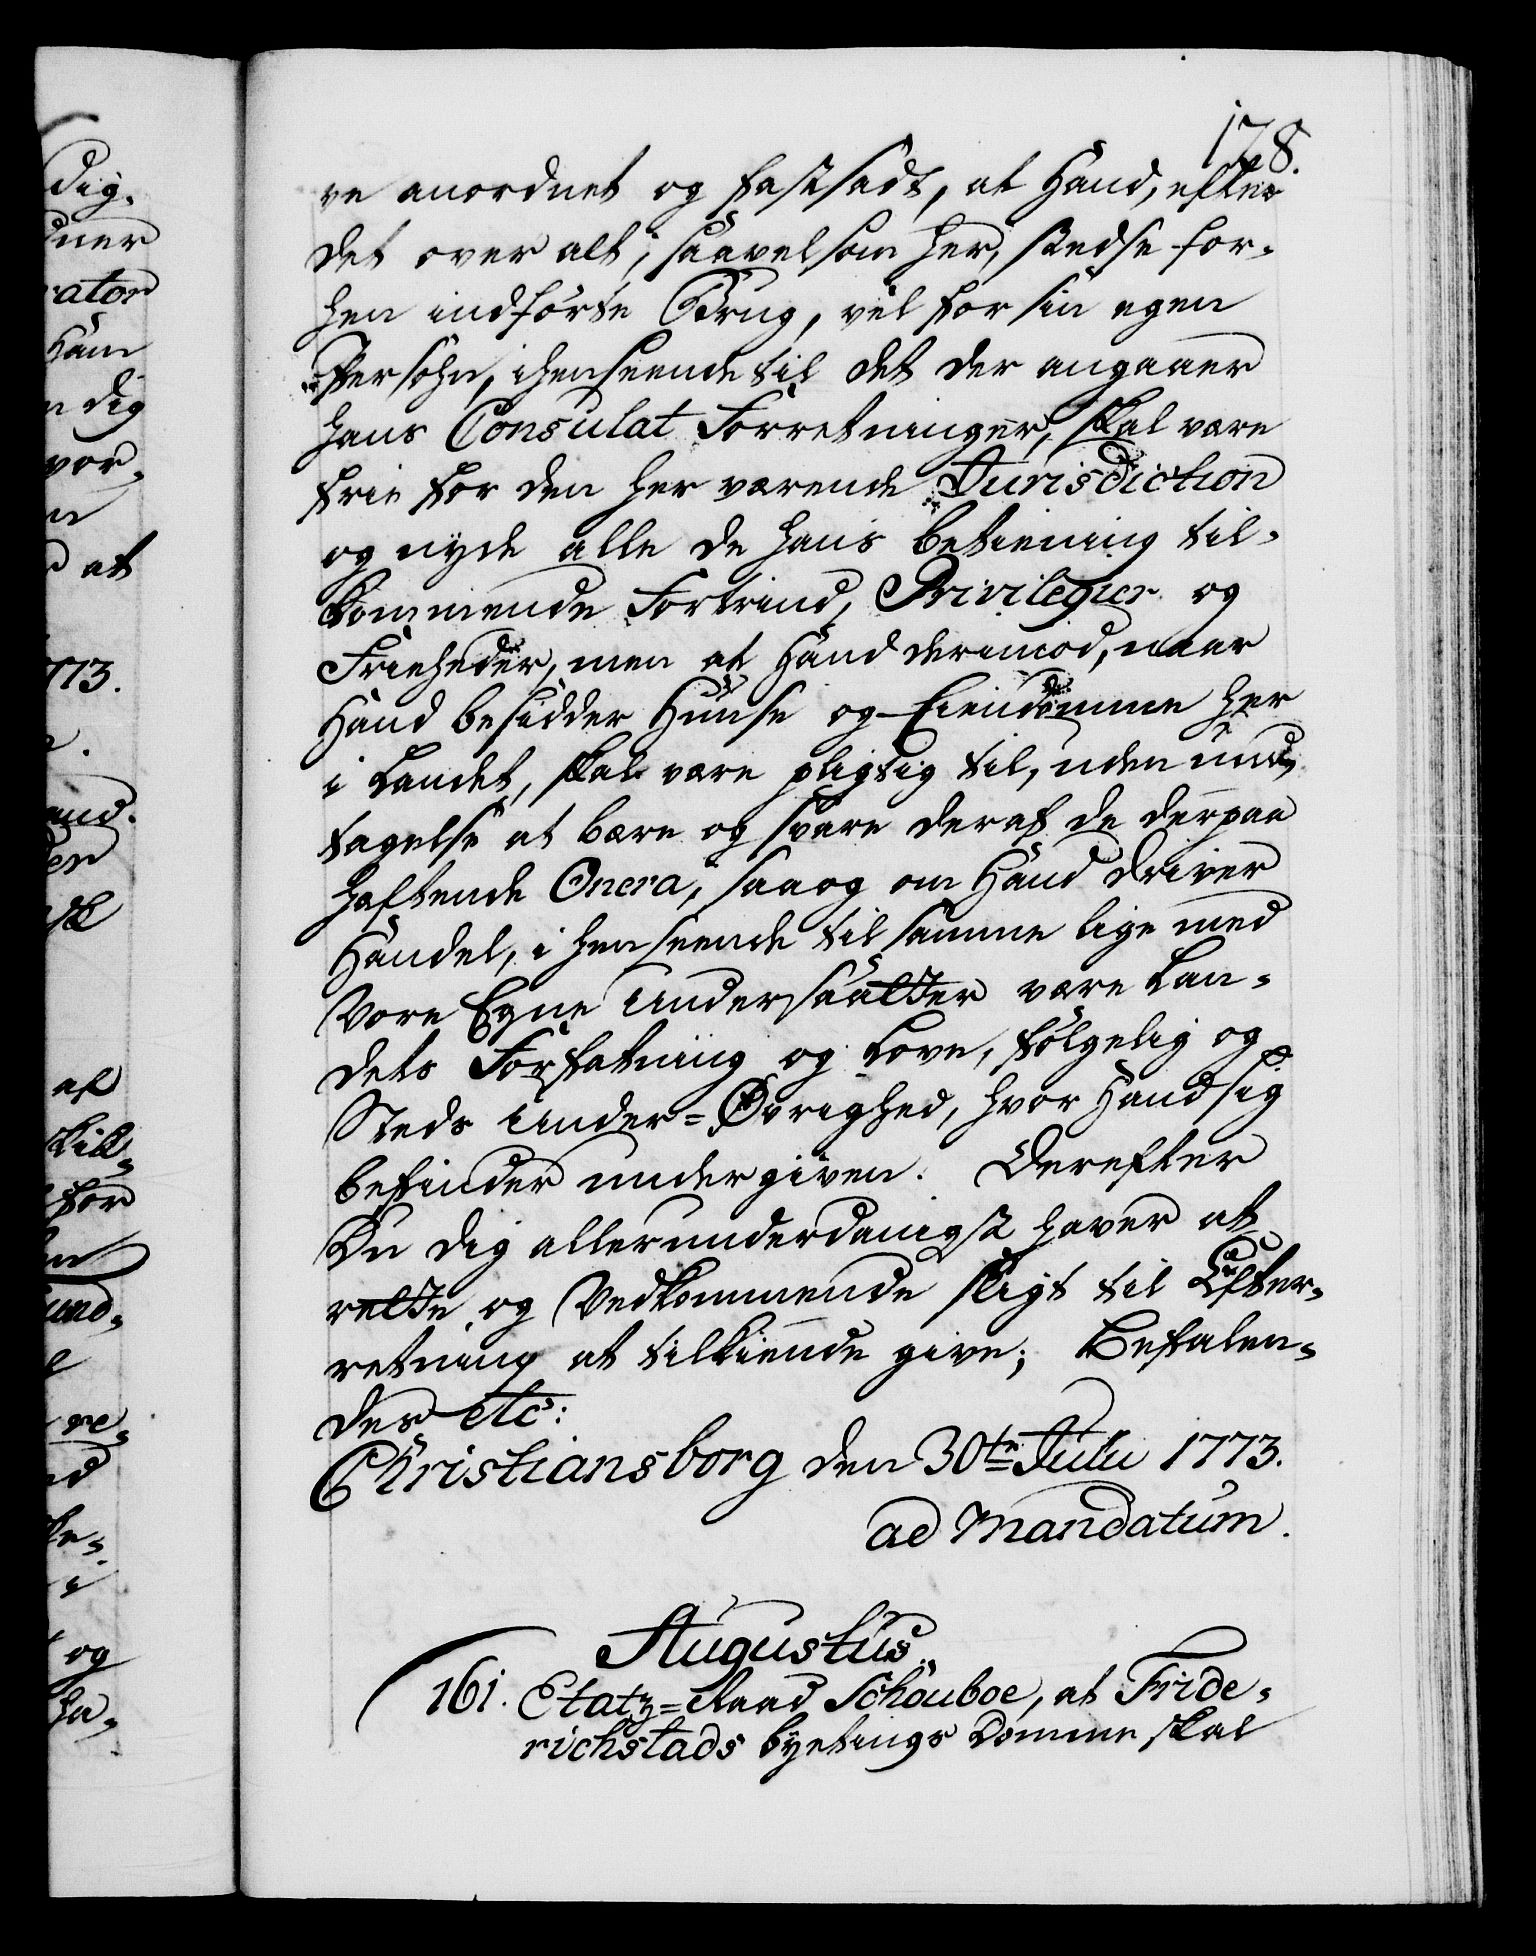 178.
re anordnet og fastsadt, at Hand, efter
det over alt, saavelsom her, stedse for-
hen indførte Brug, vel for sin egen
Persohn, i henseende til det der angaaer
hans Consulat Forretninger, skal være
frie for den her værende Jurisdiction
og nyde alle de hans betiening til-
kommende Fortrind, Privilegier og
Frieheder, men at Hand derimod, naar
Hand besidder Huuse og Eiendomme her
i Landet, skal være pligtig til, uden und-
tagelse at bære og svare deraf de derpaa
haftende Onera, saa og om Hand driver
Handel, i henseende til samme lige med
Vore Egne Undersaatter være Lan-
dets Forfatning og Love, følgelig og
Steds Under-Øvrighed, hvor Hand sig
befinder undergiven. Derefter
Du dig allerunderdanigst haver at
rette og Vedkommende sligt til Efter-
retning at tilkiende give; Befalen-
des etc:
Christiansborg den 30te Julii 1773.
ad Mandatum.
Augustus.
161. Etatz-Raad Schouboe, at Fride-
richstads byetings Domme skal
dig.
dner
rator
Ham
n dig
vor-
at
1773.
and.
der
af
kill-
for
re-
i
og
ha-